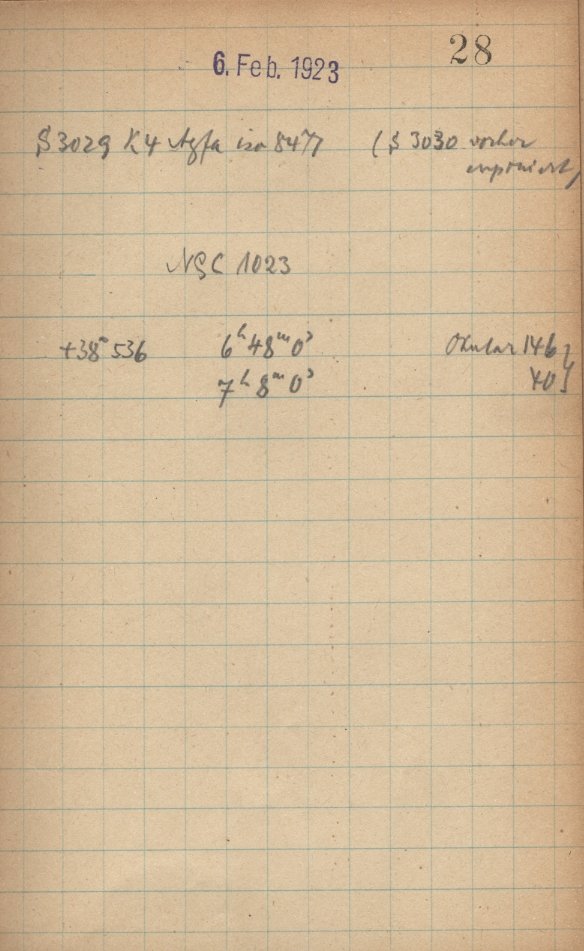 28
6. Feb. 1923
S 3029 K4 Agfa iso 8477 (S 3030 vorher
exponiert)
NGC 1023
+38° 536 6ʰ 48ᵐ 0ˢ Okular 146
7ʰ 8ᵐ 0ˢ 40